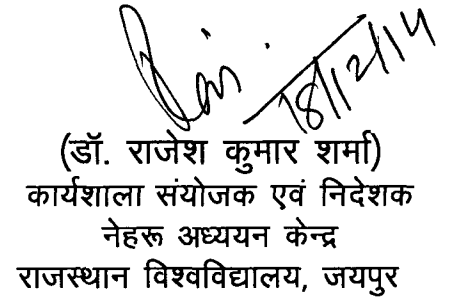 18/12/14
(डॉ. राजेश कुमार शर्मा)
कार्यशाला संयोजक एवं निदेशक
नेहरू अध्ययन केन्द्र
राजस्थान विश्वविद्यालय, जयपुर